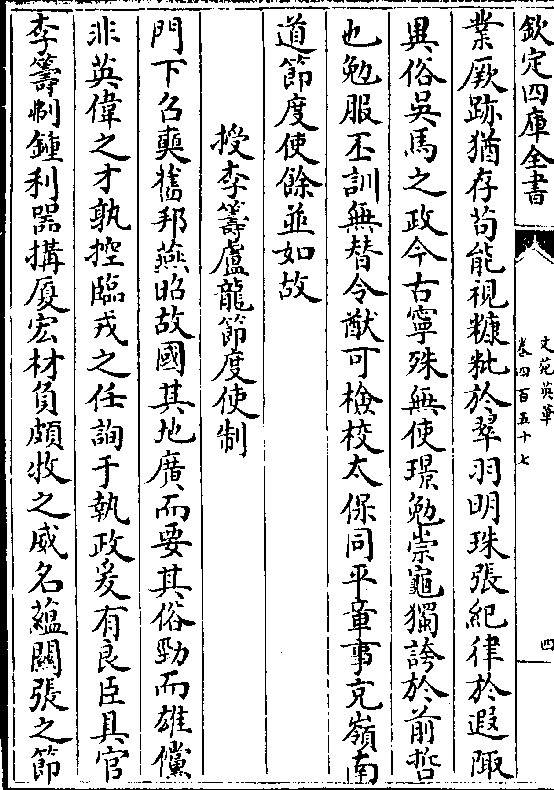 欽定四庫全書
文苑英華
卷四百五十七
四
業厥跡猶存苟能視糠粃於翠羽明珠張紀律於遐陬
異俗吳馬之政今古寧殊無使璟勉崇龜獨誇於前哲
也勉服丕訓無替令猷可檢校太保同平章事充嶺南
道節度使餘並如故
授李籌盧龍節度使制
門下召奭舊邦燕昭故國其地廣而要其俗勁而雄儻
非英偉之才孰控臨戎之任詢于執政爰有良臣具官
李籌剸鍾利器搆厦宏材負頗牧之威名蘊關張之節